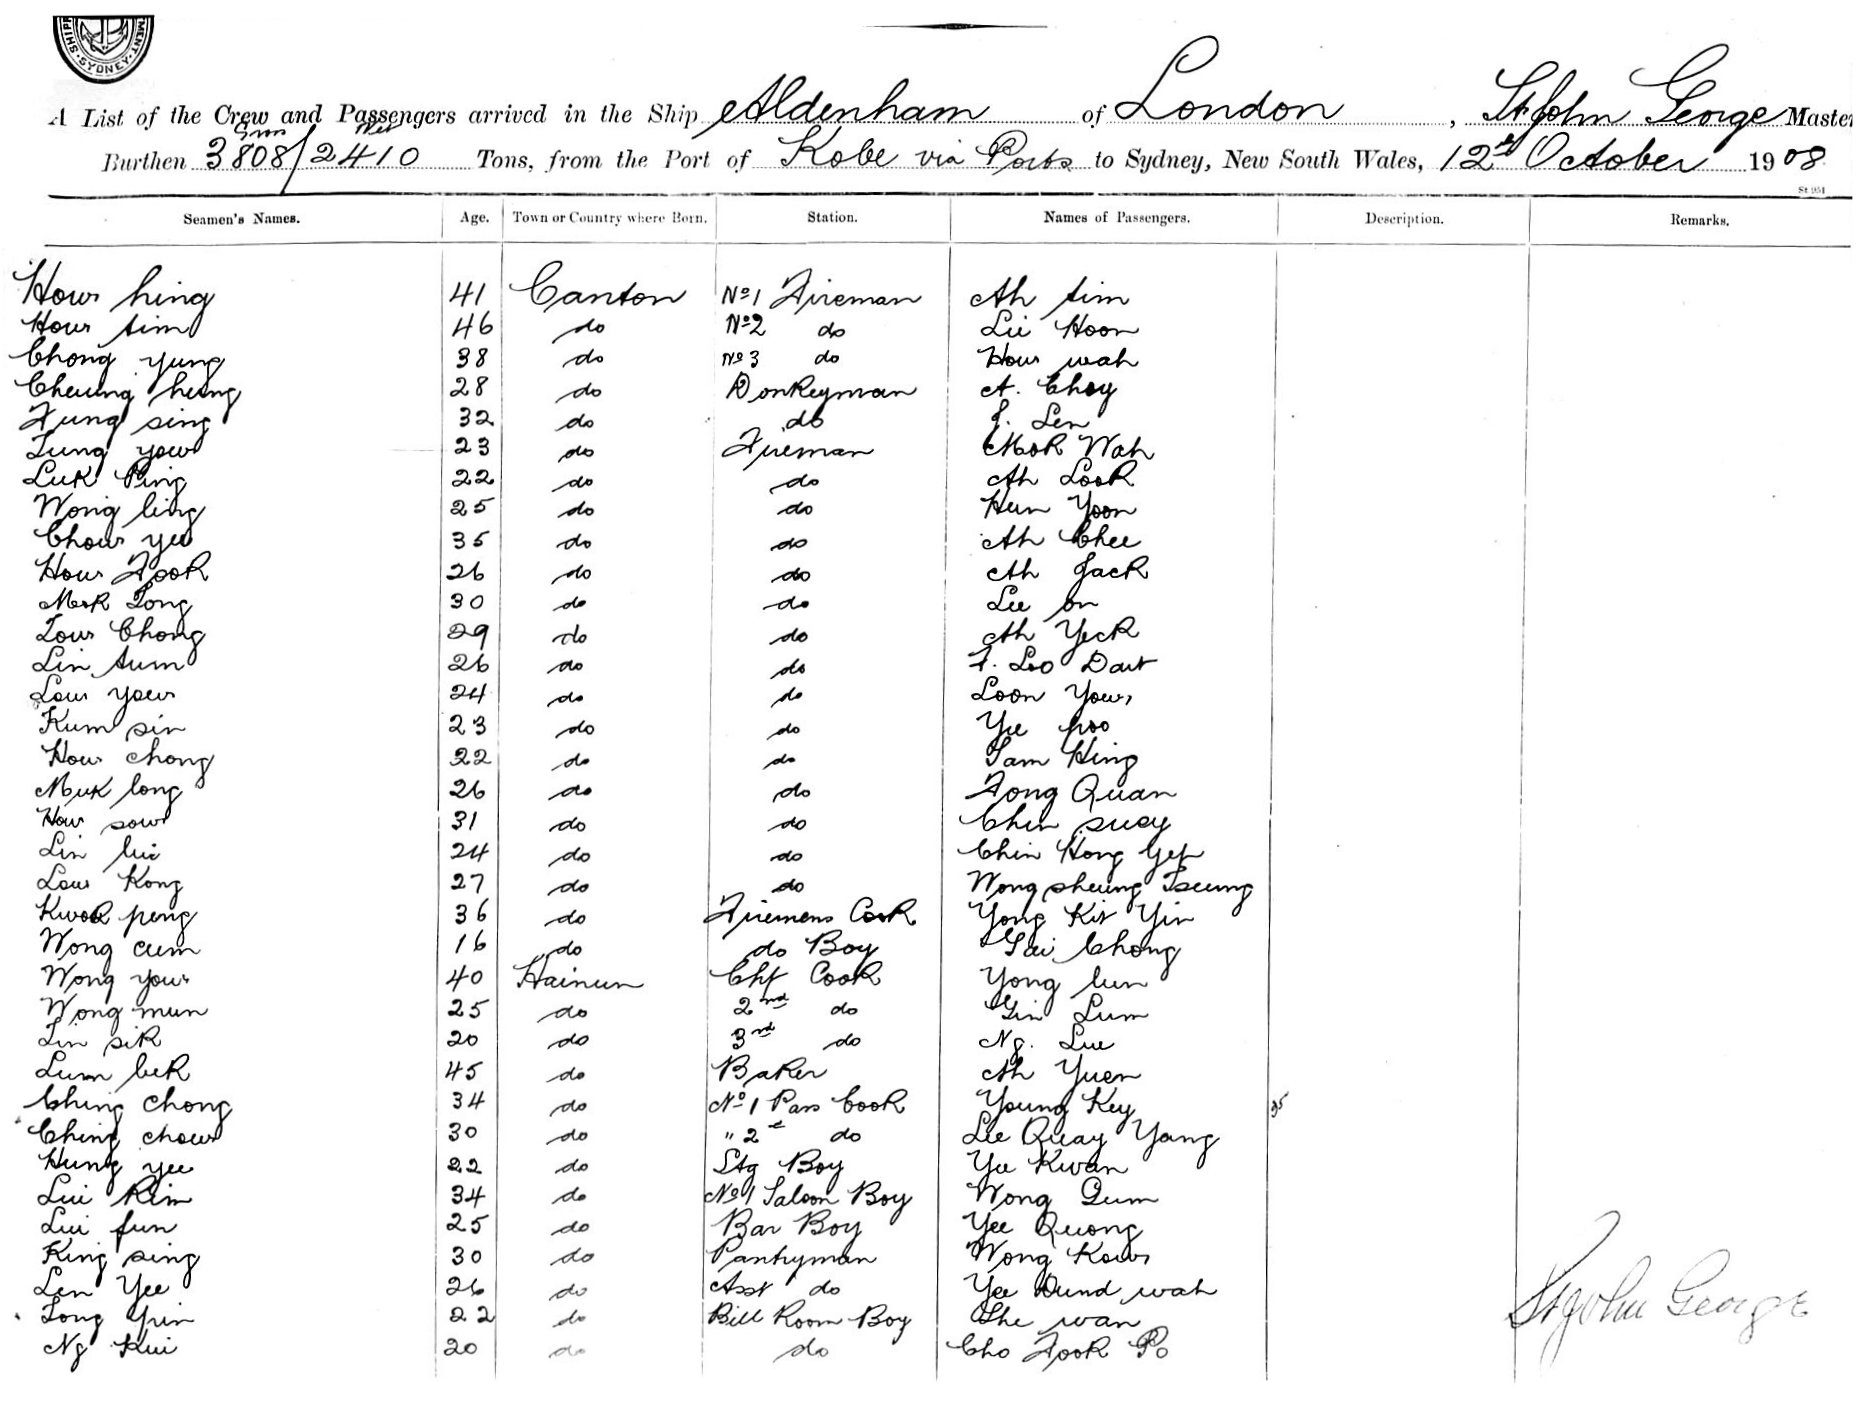 SHIPP MENT. SYDNEY.
A List of the Crew and Passengers arrived in the Ship Aldenham of London, St John George Master
Gross Nett
Burthen 3808/2410 Tons, from the Port of Kobe via Ports to Sydney, New South Wales, 12th October 1908
St 951
Seamen's Names. Age. Town or Country where Born. Station. Names of Passengers. Description. Remarks.
How hing 41 Canton No 1 Fireman Ah tim
How tim 46 do No 2 do Lii Hoon
Chong yung 38 do No 3 do How wah
Cheung heung 28 do Donkeyman A. Choy
Fung sing 32 do do J. Len
Tung yow 23 do Fireman Mok Wah
Luk Ping 22 do do Ah Look
Wong ling 25 do do Hun Yoon
Chow yee 35 do do Ah Chee
How Fook 26 do do Ah Jack
Mok Tong 30 do do Lee on
Low Chong 29 do do Ah Yeck
Lin tum 26 do do F. Loo Dat
Low yow 24 do do Loon Yow
Kum sin 23 do do Yee hoo
How chong 22 do do Sam Hing
Muk long 26 do do Fong Quan
How sow 31 do do Chin suey
Lin lui 24 do do Chin Hong Yep
Low Kong 27 do do Wong sheung Tseung
Kwok peng 36 do Firemens Cook Yong Kit Yin
Wong cum 16 do do Boy Gai Chong
Wong yow 40 Hainun Chf Cook Yong lun
Wong mun 25 do 2nd do Gin Lum
Lin sik 20 do 3rd do Ng. Lue
Lum bek 45 do Baker Ah Yuen
Ching chong 34 do No 1 Pass Cook Young Key 35
Ching chow 30 do " 2 do Lee Quay Yang
Hung yee 22 do Stg Boy Yee Kwan
Lui Kim 34 do No 1 Saloon Boy Wong Gum
Lui fun 25 do Bar Boy Yee Quong
King sing 30 do Pantryman Wong Kow
Len Yee 26 do Asst do Yee Dund wah
Tong Yun 22 do Bill Room Boy She wan
Ng Kui 20 do do Cho Fook Po
St John George